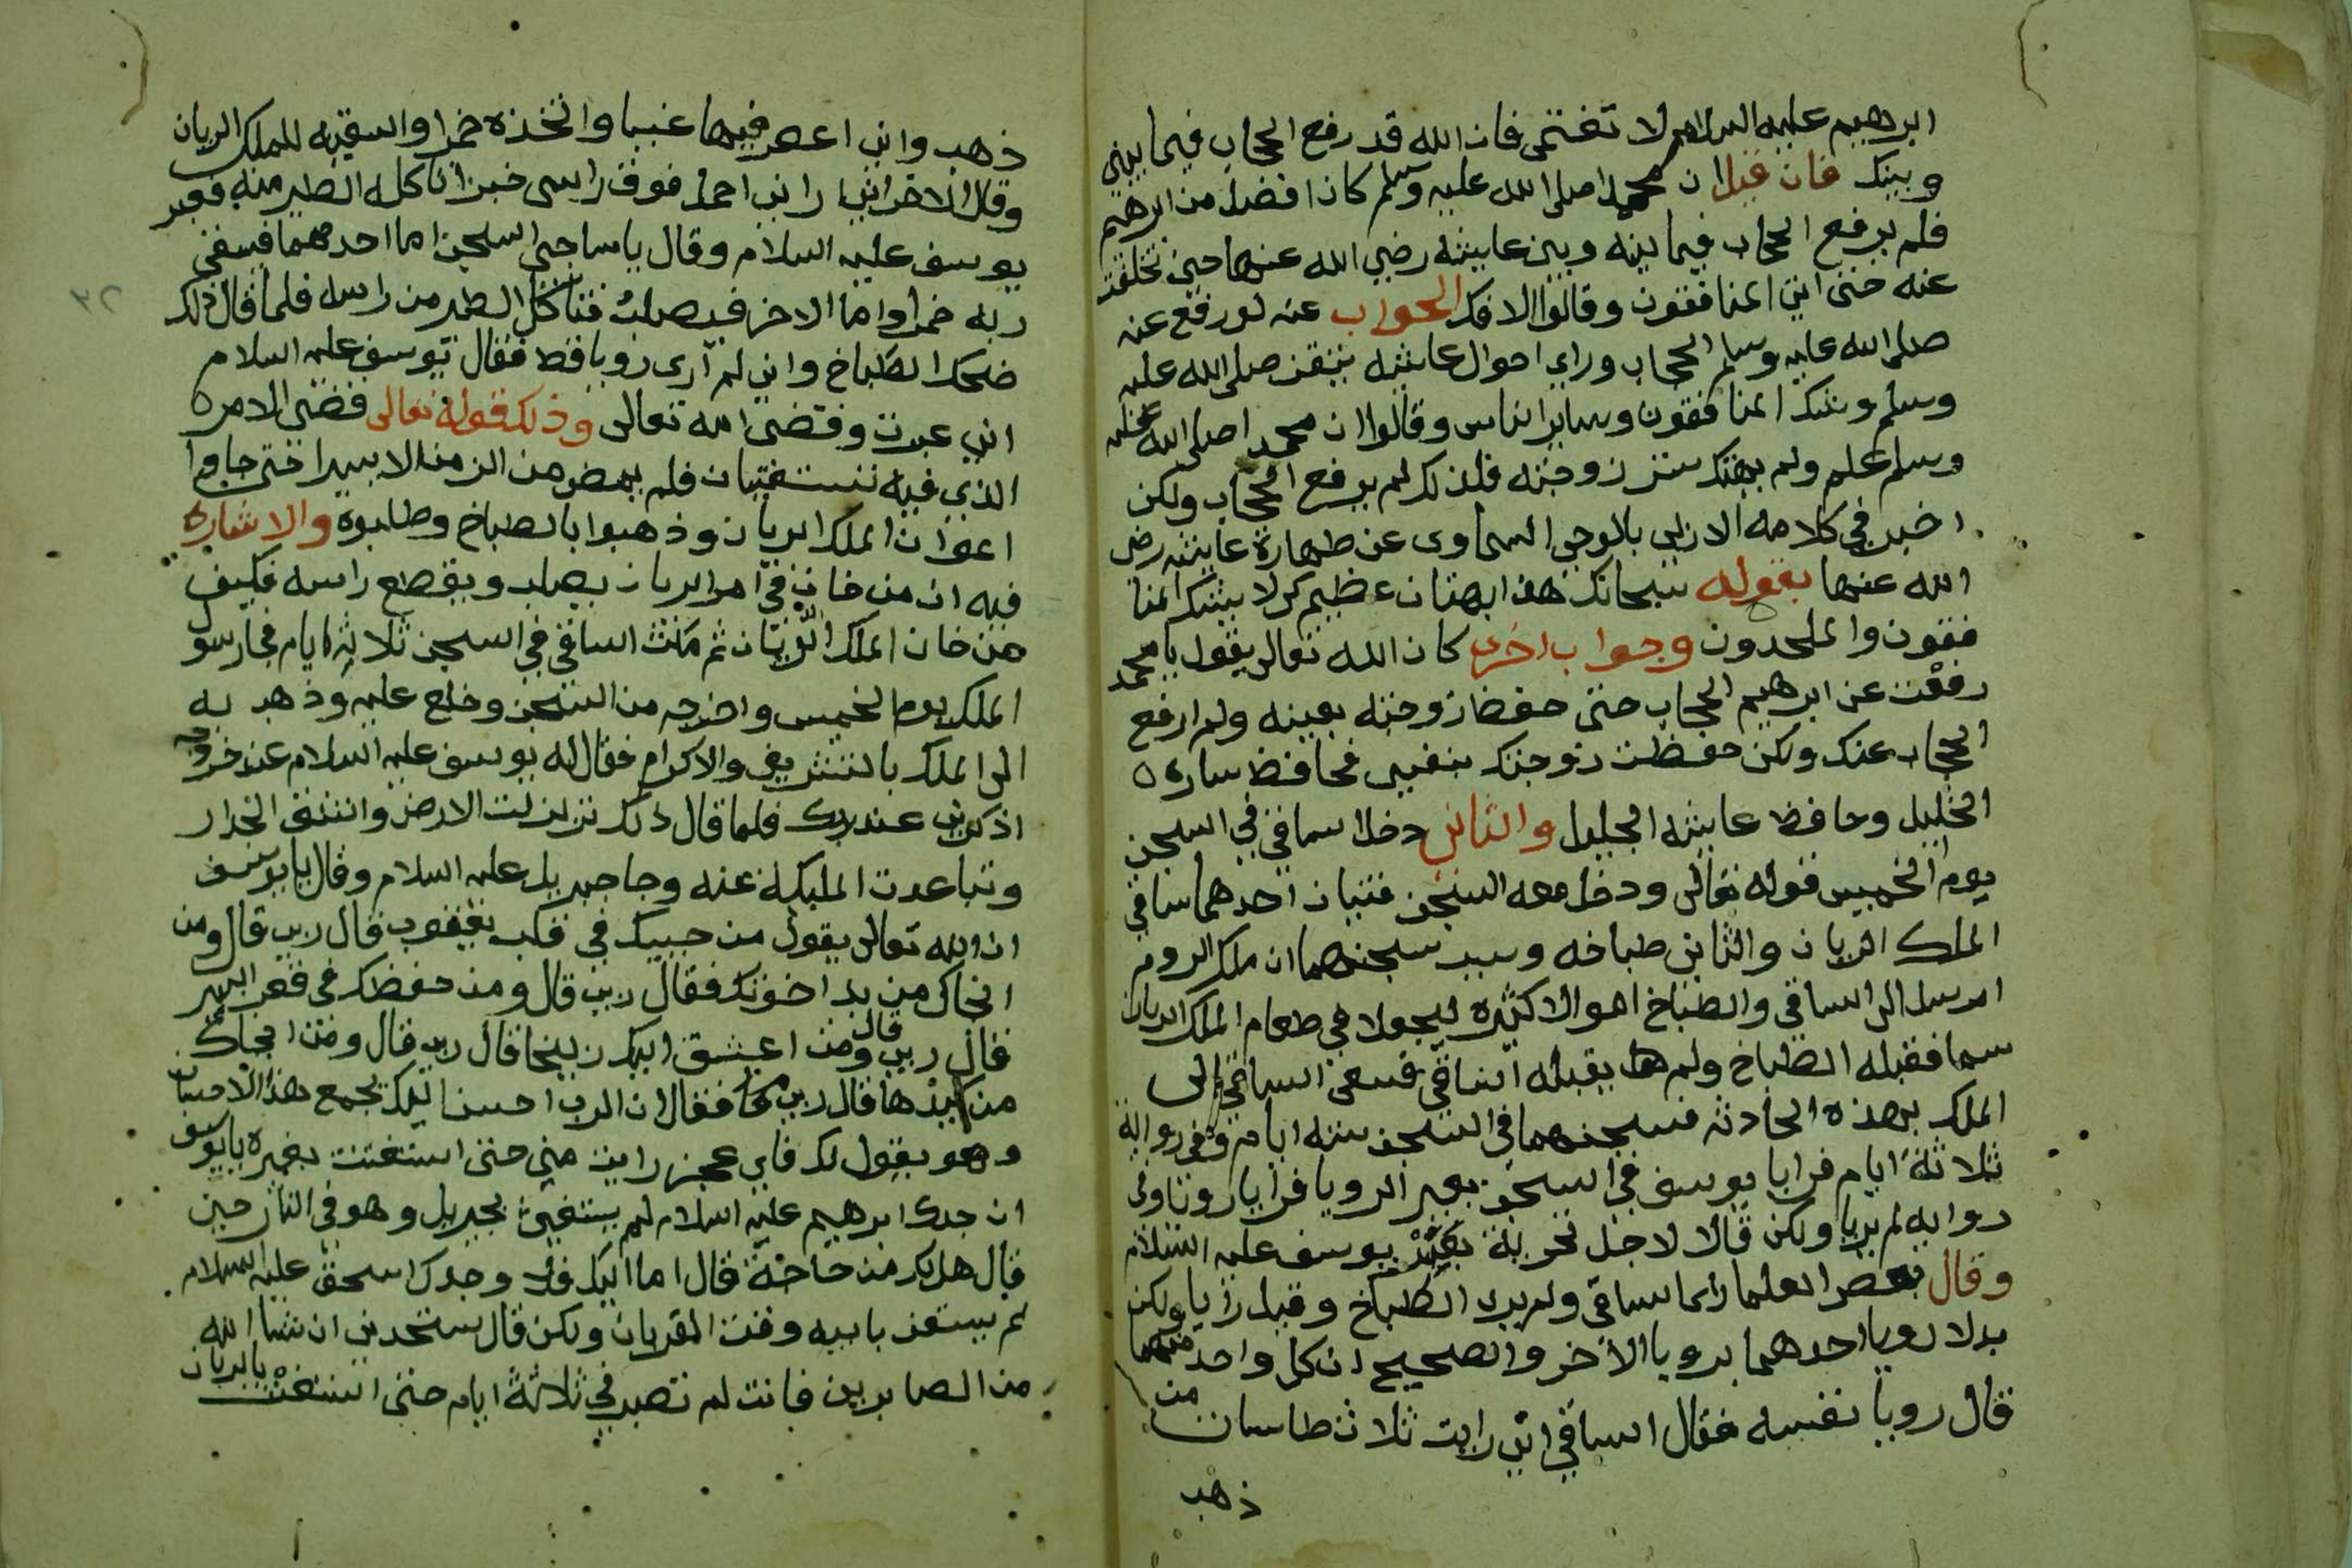 ابرهيم عليه السلام لا تغتمى فان الله قد رفع الحجاب فيما بينى
وبينك فان قيل ان محمدا صلى الله عليه وسلم كان افضل من ابرهيم
فلم يرفع الحجاب فيما بينه وبين عايشه رضي الله عنها حين تخلفت
عنه حتى المنافقون وقالوا الافك الجواب عنه لو رفع عنه
صلى الله عليه وسلم الحجاب وراى احوال عايشه صلى الله عليه
وسلم وشك المنافقون وساير الناس وقالوا ان محمدا صلى الله عليه
وسلم علم ولم يهتك ستر زوجته فلذلك لم يرفع الحجاب ولكن
اخبر في كلامه الازلى بالوحى السماوى عن طهارة عايشه رضى
الله عنها بقوله سبحانك هذا بهتان عظيم كى لا يشك المنا
فقون والملحدون وجواب اخرى كان الله تعالى يقول يا محمد
رفعت عن ابرهيم الحجاب حتى حفظ زوجته بعينه ولم ارفع
الحجاب عنك ولكن حفظت زوجتك بنفسى فحافظ ساره
الخليل وحافظ عايشه الجليل والثانى دخل الساقي في السجن
يوم الخميس قوله تعالى ودخل معه السجن فتيان احدهما ساقي
الملك الريان والثانى طباخه وسبب سجنهما ان ملك الروم
ارسل الى الساقي والطباخ اموالا كثيره ليجعلا في طعام الملك الريان
سما فقبله الطباخ ولم يقبله الساقي فسعى الساقي الى
الملك بهذه الحادثه فسجنهما في السجن ستة ايام وفي رواية
ثلاثة ايام فرايا يوسف في السجن يعبر الرويا فرايا رويا وفى
روايه لم يريا ولكن قالا لاجل تجربة يوسف عليه السلام
وقال بعض العلما راى الساقى ولم يرى الطباخ وقيل رايا ولكن
بدلا رويا احدهما برويا الآخر والصحيح ان كل واحد منهما
قال رويا نفسه فقال الساقي انى رايت ثلاث طاسات من
ذهب
ذهب وانى اعصر فيها عنبا واتخذه خمرا واسقيه للملك الريان
وقال الاخر انى ارانى احمل فوق راسى خبزا تاكل الطير منه فعبر
يوسف عليه السلام وقال يا صاحبى السجن اما احدكما فيسقى
ربه خمرا واما الاخر فيصلب فتاكل الطير من راسه فلما قال ذلك
ضحك الطباخ وانى لم ارى رويا قط فقال يوسف عليه السلام
انى عبرت وقضى الله تعالى وذلك قوله تعالى قضى الامر
الذى فيه تستفتيان فلم يمض من الزمن الا يسيرا حتى جاوا
اعوان الملك الريان وذهبوا بالطباخ وصلبوه والاشاره
فيه ان من خان في امر الريان يصلب ويقطع راسه فكيف
من خان الملك الديان ثم مكث الساقي في السجن ثلاثة ايام فجا رسول
الملك يوم الخميس واخرجه من السجن وخلع عليه وذهب به
الى الملك بالتشريف والاكرام فقال له يوسف عليه السلام عند خروجه
اذكرنى عند ربك فلما قال ذلك تزلزلت الارض وانشق الجدار
وتباعدت المليكة عنه وجا جبريل عليه السلام وقال يا يوسف
ان الله تعالى يقول من حببك في قلب يعقوب قال ربى قال ومن
انجاك من يد اخوتك فقال ربى قال ومن حفظك في قعر البير
قال ربى قال ومن اعشق اليك زليخا قال ربى قال ومن انجاك
من كيدها قال ربى فقال ان الرب احسن اليك بجمع هذا الاحسان
وهو يقول لك فاى عجز رايت منى حتى استغثت بغيره يا يوسف
ان جدك ابرهيم عليه السلام لم يستغيث بجبريل وهو في النار حين
قال هل لك من حاجة قال اما اليك فلا وجدك اسحق عليه السلام
لم يستغث بابيه وقت القربان ولكن قال ستجدنى ان شا الله
من الصابرين فانت لم تصبر في ثلاثة ايام حتى استغثت بالريان
٣٢